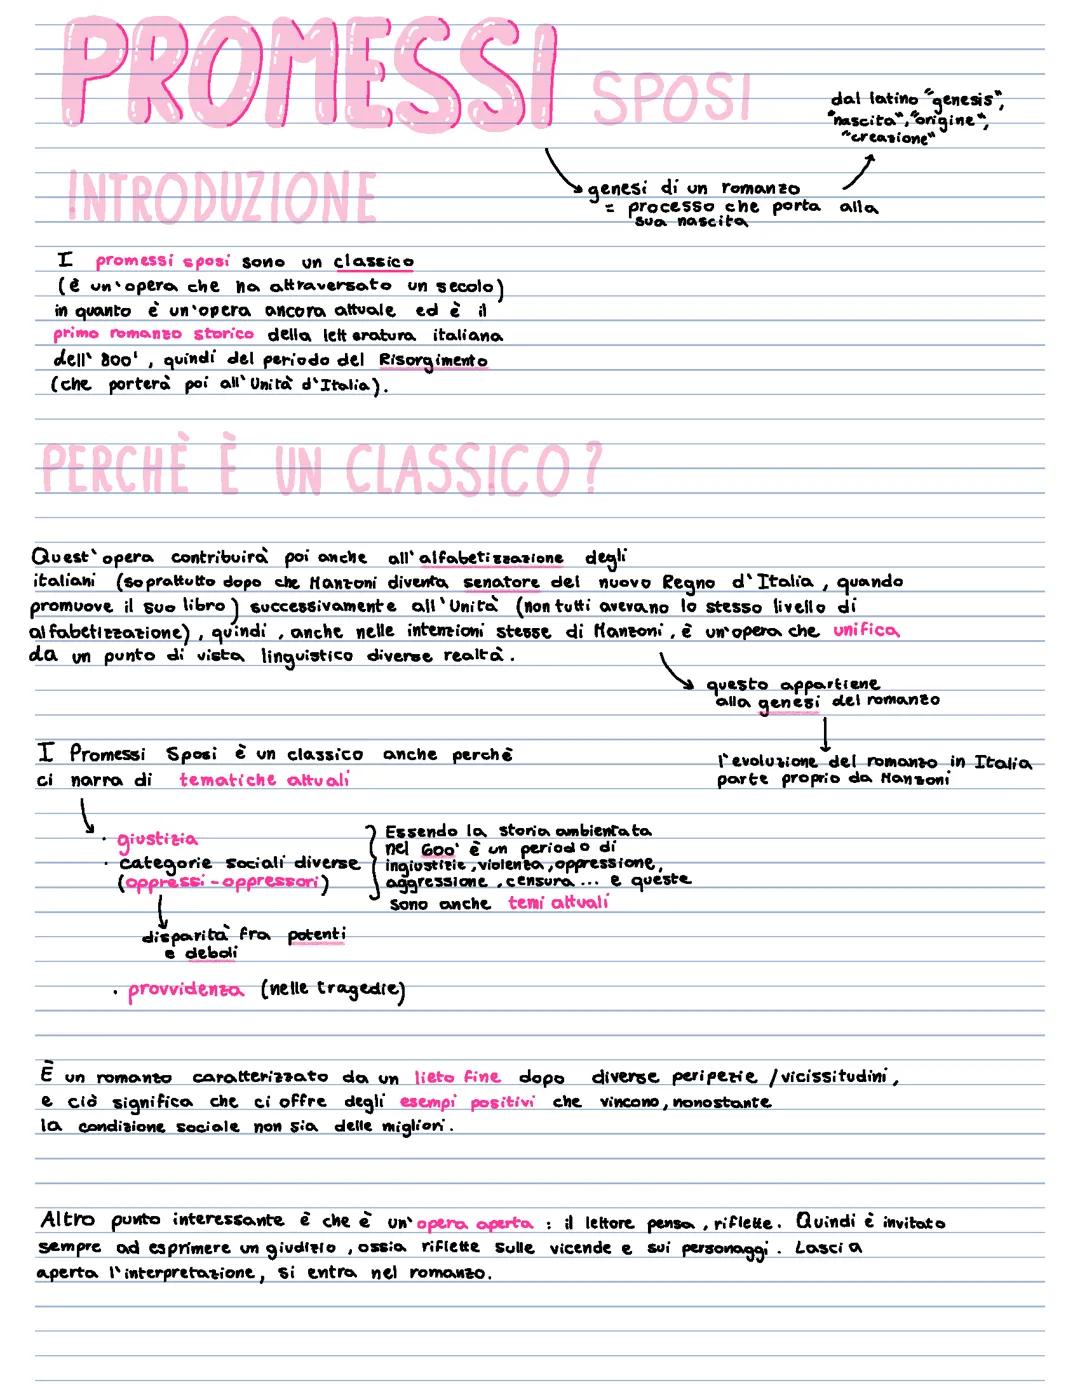 PROMESSI SPOSI
dal latino "genesis",
"nascita", "origine",
"creazione"
genesi di un romanzo
= processo che porta alla
sua nascita
INTRODUZIONE
I promessi sposi sono un classico
(è un'opera che ha attraversato un secolo)
in quanto è un'opera ancora attuale ed è il
primo romanzo storico della letteratura italiana
dell'800', quindi del periodo del Risorgimento
(che porterà poi all'Unità d'Italia).
PERCHÈ È UN CLASSICO?
Quest'opera contribuirà poi anche all'alfabetizzazione degli
italiani (soprattutto dopo che Manzoni diventa senatore del nuovo Regno d'Italia, quando
promuove il suo libro) successivamente all'Unità (non tutti avevano lo stesso livello di
alfabetizzazione), quindi, anche nelle intenzioni stesse di Manzoni, è un'opera che unifica
da un punto di vista linguistico diverse realtà.
questo appartiene
alla genesi del romanzo
l'evoluzione del romanzo in Italia
parte proprio da Manzoni
I Promessi Sposi è un classico anche perchè
ci narra di tematiche attuali
· giustizia
· categorie sociali diverse
(oppressi-oppressori)
Essendo la storia ambientata
nel 600' è un periodo di
ingiustizie, violenza, oppressione,
aggressione, censura... e queste
sono anche temi attuali
disparità fra potenti
e deboli
· provvidenza (nelle tragedie)
È un romanzo caratterizzato da un lieto fine dopo diverse peripezie/vicissitudini,
e ciò significa che ci offre degli esempi positivi che vincono, nonostante
la condizione sociale non sia delle migliori.
Altro punto interessante è che è un'opera aperta: il lettore pensa, riflette. Quindi è invitato
sempre ad esprimere un giudizio, ossia riflette sulle vicende e sui personaggi. Lascia
aperta l'interpretazione, si entra nel romanzo.